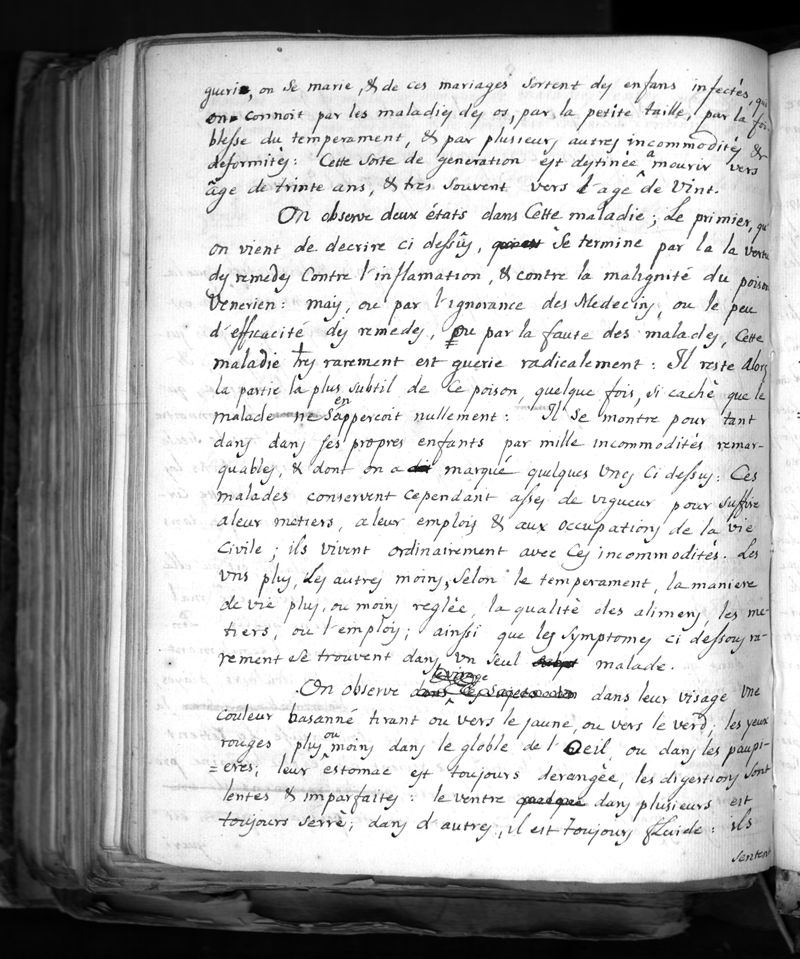 guerie, on se marie, & de ces mariages sortent des enfans infectés, qu'
on connoit par les maladies des os, par la petite taille, par la foi-
blesse du temperament, & par plusieurs autres incommodités &
deformités: Cette sorte de generation est destinée a mourir vers
âge de trinte ans, & tres souvent vers l'age de vint.
On observe deux états dans Cette maladie; Le primier, qu'
on vient de decrire ci dessûs, se termine par la la vertu
des remedes Contre l'inflamation, & contre la malignité du poison
Venerien: mais, ou par l'ignorance des Medecins, ou le peu
d'efficacité des remedes, ou par la faute des malades, Cette
maladie trés rarement est guerie radicalement: Il reste alors
la partie la plus subtil de Ce poison, quelque fois, si caché que le
malade ne s'en appercoit nullement: Il se montre pour tant
dans dans ses propres enfants par mille incommodités remar-
quables, & dont on a marqué quelques unes Ci dessus: Ces
malades conservent Cependant asses de vigueur pour suffire
a leur metiers, a leur emplois & aux occupations de la vie
Civile; ils vivent ordinairement avec Ces incommodités. Les
uns plus, Les autres moins, Selon le temperament, la maniere
de vie plus, ou moins reglée, la qualité des alimens, les me-
tiers, ou l'emploi; ainsi que les symptomes ci dessous ra-
rement se trouvent dans un seul malade.
On observe dans leur visage Une
couleur basanné tirant ou vers le jaune, ou vers le verd, les yeux
rouges plus ou moins dans le globle de l'Oeil, ou dans les paupi-
=eres; leur estomac est toujours derangée, les digestions sont
lentes & imparfaites: le ventre dans plusieurs est
toujours serré; dans d'autres, il est toujours fluide: ils
sentent